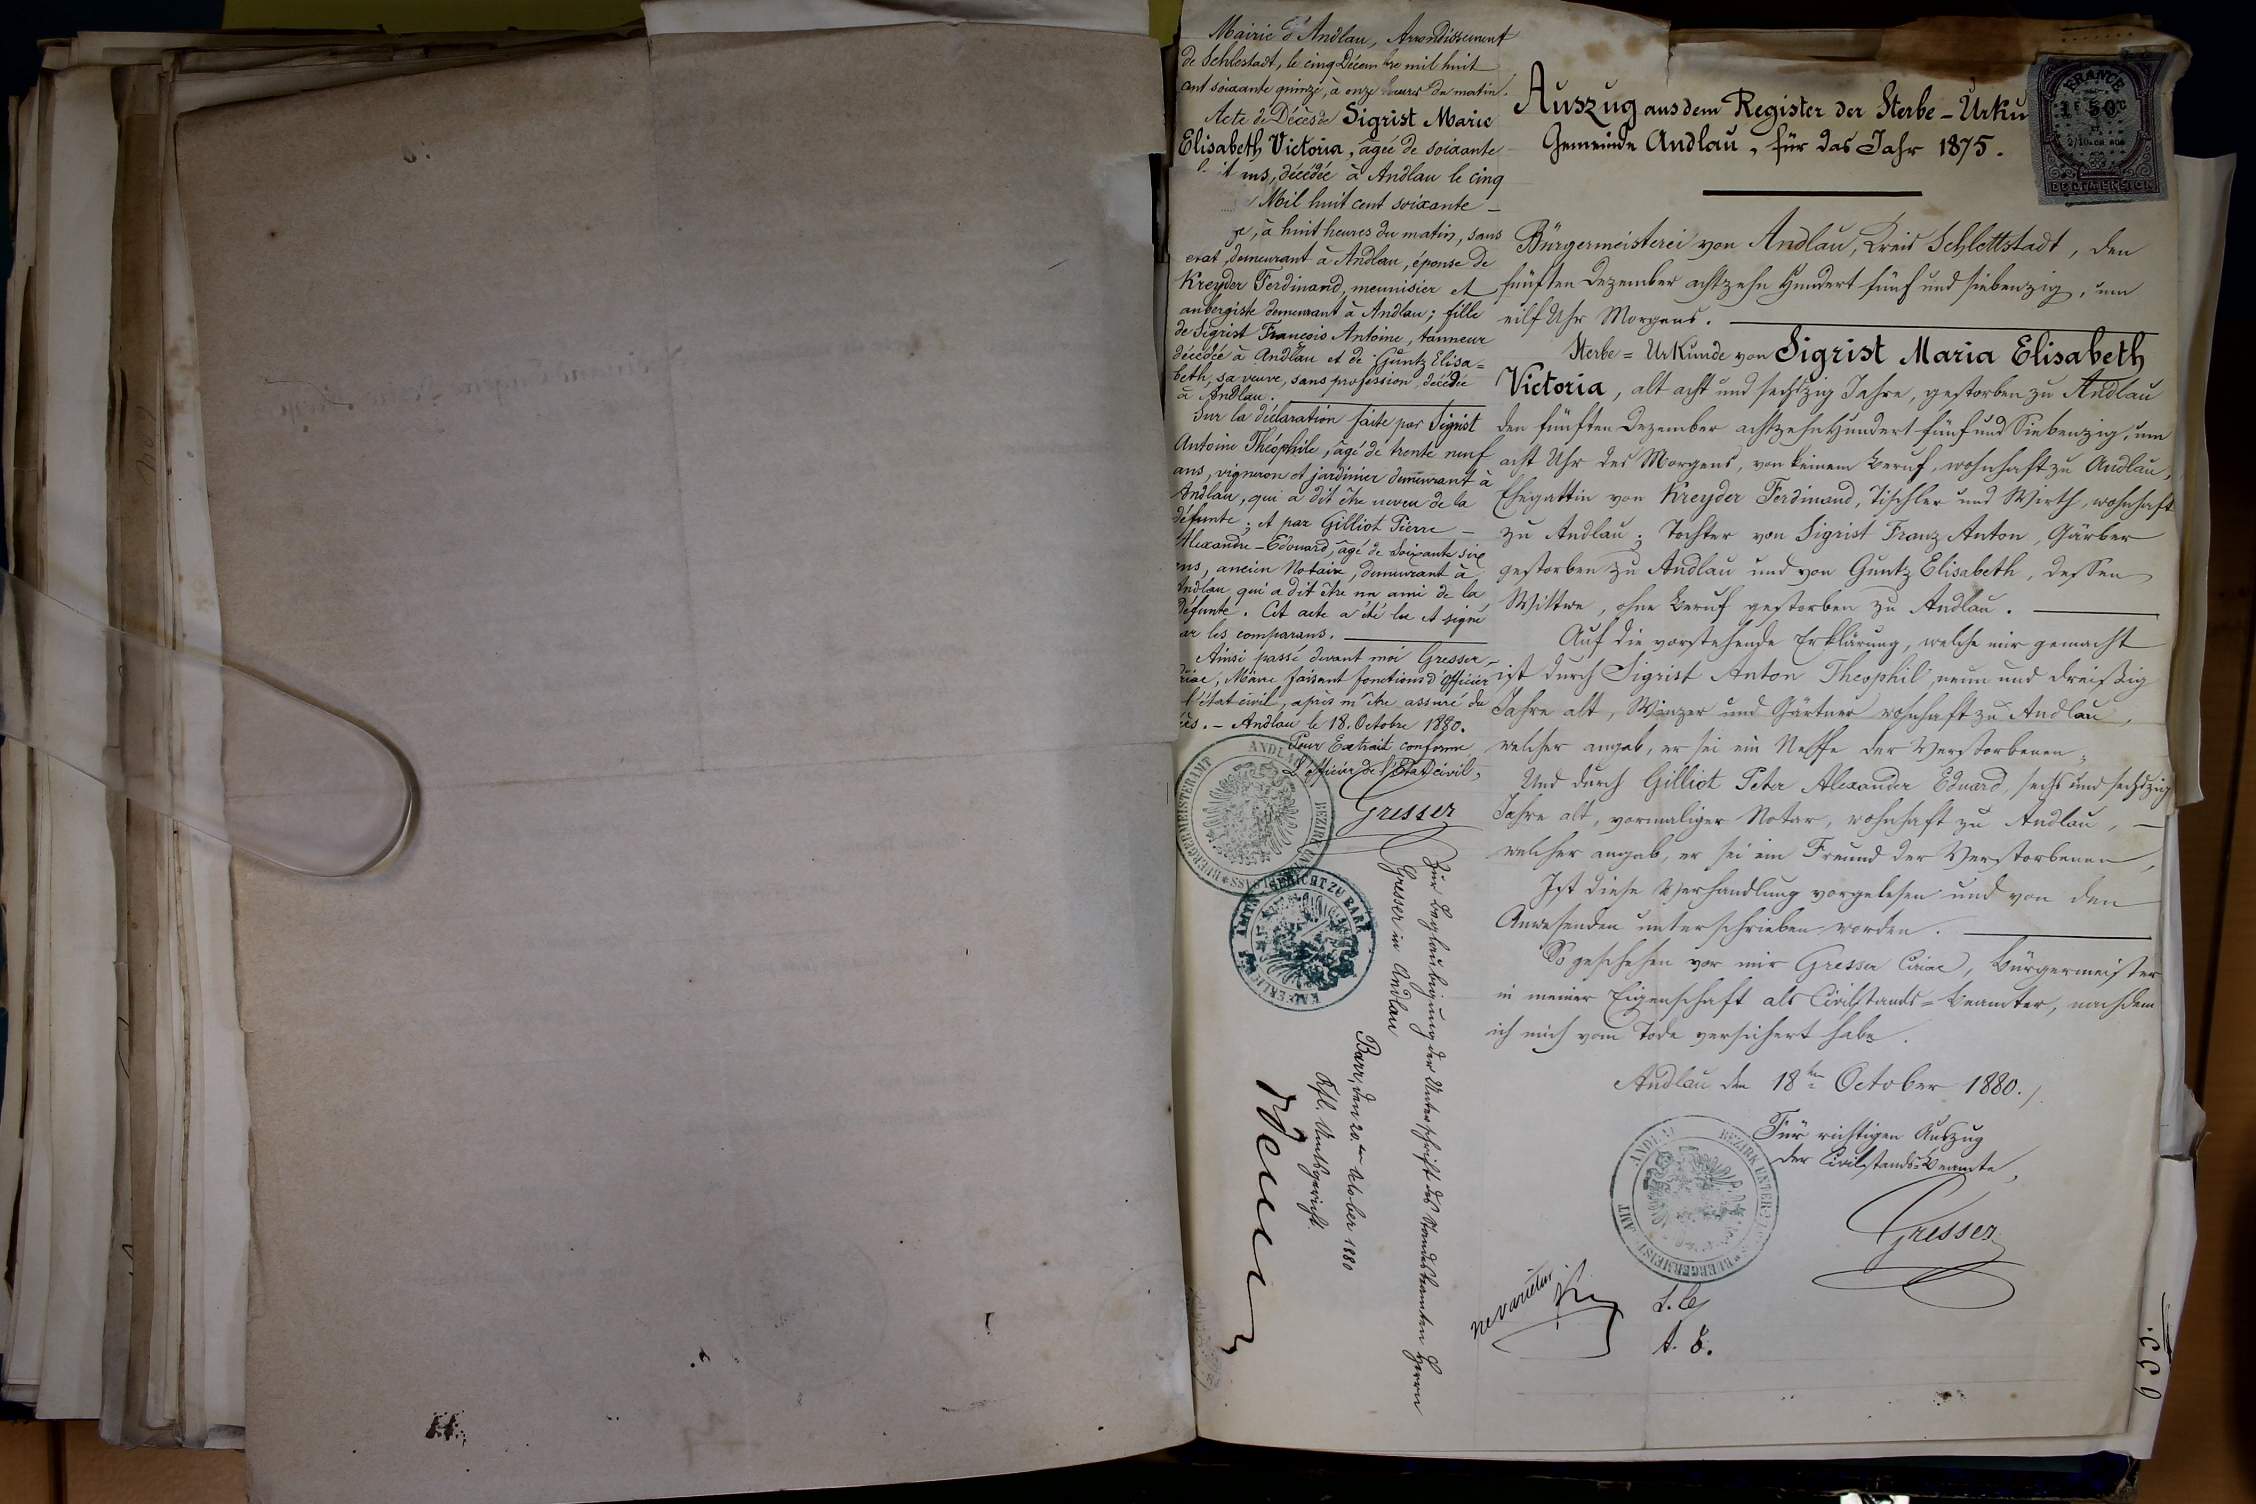 Mairie d'Andlau, Arrondissement
de Schlestadt, le cinq Décembre mil huit
cent soixante quinze, à onze heures du matin.
Acte de Décès de Sigrist Marie
Elisabeth Victoria, âgée de soixante
ans, décédée à Andlau le cinq
Mil huit cent soixante –
à huit heures du matin, sans
état, demeurant à Andlau, épouse de
Kreyder Ferdinand, meunisier et
aubergiste demeurant à Andlau; fille
de Sigrist François Antoine, tanneur
décédée à Andlau et de Guntz Elisa=
beth, sa veuve, sans profession, décédée
à Andlau.
Sur la déclaration faite par Sigrist
Antoine Théophile, âgé de trente neuf
ans, vigneron et jardinier demeurant à
Andlau, qui a dit être neveu de la
défunte; et par Gilliot Pierre –
Alexandre-Edouard, âgé de soixante six
ans, ancien Notaire, demeurant à
Andlau qui a dit être un ami de la
défunte. Cet acte a été lu et signé
par les comparans.
Ainsi passé devant moi Gresser
Maire faisant fonctions d'officier
l'état civil, après m'être assuré du
– Andlau le 18. Octobre 1880.
Pour Extrait conforme
L'officier de l'Etat civil,
Gresser
BUERGERMEISTERAMT ANDLAU BEZIRK UNTER-ELSASS
KAISERLICHES AMTSGERICHT ZU BARR
Zur Beglaubigung der Unterschrift des Standesbeamten Herrn
Gresser in Andlau
Barr, den 20.ten October 1880
Kfl. Amtsgericht.
Auszug aus dem Register der Sterbe-Urku
Gemeinde Andlau, für das Jahr 1875.
FRANCE
1F 50C
2/10 en sus
DIMENSION
Bürgermeisterei von Andlau, Kreis Schlettstadt, den
fünften Dezember achtzehn Hundert fünf und siebenzig, um
eilf Uhr Morgens.
Sterbe=Urkunde von Sigrist Maria Elisabeth
Victoria, alt acht und sechszig Jahre, gestorben zu Andlau
den fünften Dezember achtzehn Hundert fünf und Siebenzig, um
acht Uhr des Morgens, von keinem Beruf, wohnhaft zu Andlau,
Ehegattin von Kreyder Ferdinand, Tischler und Wirth, wohnhaft
zu Andlau; Tochter von Sigrist Franz Anton, Gärber
gestorben zu Andlau und von Guntz Elisabeth, dessen
Wittwe, ohne Beruf gestorben zu Andlau.
Auf die vorstehende Erklärung, welche mir gemacht
ist durch Sigrist Anton Theophil, neun und dreißig
Jahre alt, Winzer und Gärtner wohnhaft zu Andlau,
welcher angab, er sei ein Neffe der Verstorbenen,
Und durch Gilliot Peter Alexander Eduard, sechs und sechszig
Jahre alt, vormaliger Notar, wohnhaft zu Andlau, –
welcher angab, er sei ein Freund der Verstorbenen,
Ist diese Verhandlung vorgelesen und von den
Anwesenden unterschrieben worden.
So geschehen vor mir Gresser Ciriac, Bürgermeister
in meiner Eigenschaft als Civilstands=Beamter, nachdem
ich mich vom Tode versichert habe.
Andlau den 18ten October 1880.
Für richtigen Auszug
Der Civilstands=Beamte,
Gresser
BUERGERMEIST. AMT ANDLAU BEZIRK UNTER
ne varietur